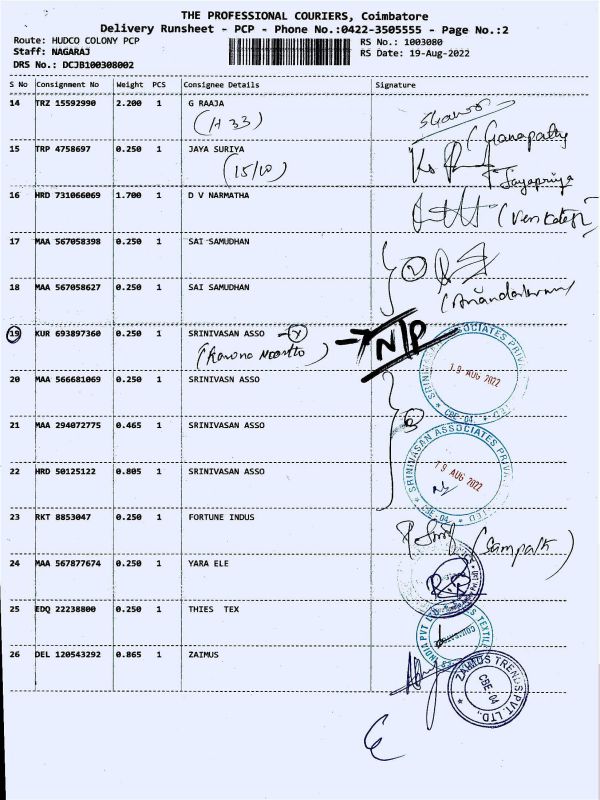 THE PROFESSIONAL COURIERS, Coimbatore
Delivery Runsheet - PCP - Phone No.:0422-3505555 - Page No.:2
Route: HUDCO COLONY PCP
RS No.: 1003080
Staff: NAGARAJ
RS Date: 19-Aug-2022
DRS No.: DCJB100308002
S No Consignment No Weight PCS Consignee Details Signature
14 TRZ 15592990 2.200 1 G RAAJA
(H 33)
(Ganapathy
15 TRP 4758697 0.250 1 JAYA SURIYA
(15/10)
Jayapriya
16 HRD 731066069 1.700 1 D V NARMATHA
(Venkatesh)
17 MAA 567058398 0.250 1 SAI SAMUDHAN
2
18 MAA 567058627 0.250 1 SAI SAMUDHAN
19 KUR 693897360 0.250 1 SRINIVASAN ASSO
N/P
SRINIVASAN ASSOCIATES PRIVATE LTED * CBE-04 *
19 AUG 2022
20 MAA 566681069 0.250 1 SRINIVASN ASSO
21 MAA 294072775 0.465 1 SRINIVASAN ASSO
SRINIVASAN ASSOCIATES PRIVA LTED * CBE-04 *
19 AUG 2022
22 HRD 50125122 0.805 1 SRINIVASAN ASSO
23 RKT 8853047 0.250 1 FORTUNE INDUS
(Sampath)
24 MAA 567877674 0.250 1 YARA ELE
25 EDQ 22238800 0.250 1 THIES TEX
INDIA PVT LTD
26 DEL 120543292 0.865 1 ZAIMUS
ZAIMUS TRENDS PVT. LTD.,
CBE-04